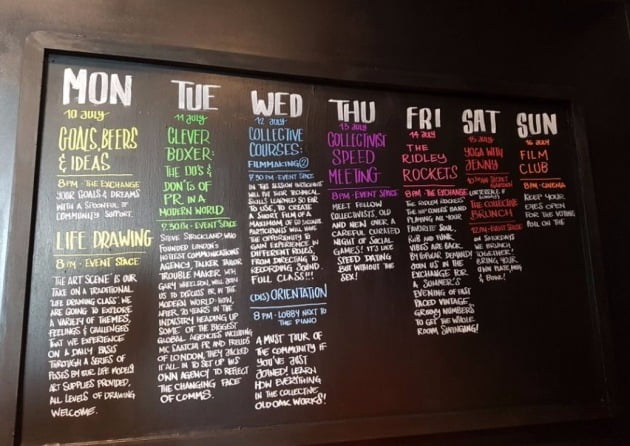 MON
10 JULY
GOALS, BEERS
& IDEAS
8PM - THE EXCHANGE
YOUR GOALS & DREAMS
WITH A SPOONFUL OF
COMMUNITY SUPPORT.
LIFE DRAWING
8PM - EVENT SPACE
'THE ART SCENE' IS OUR
TAKE ON A TRADITIONAL
'LIFE DRAWING CLASS'. WE
ARE GOING TO EXPLORE
A VARIETY OF THEMES,
FEELINGS & CHALLENGES
THAT WE EXPERIENCE
ON A DAILY BASIS
THROUGH A SERIES OF
POSES BY OUR LIFE MODEL!
ART SUPPLIES PROVIDED,
ALL LEVELS OF DRAWING
WELCOME.
TUE
11 JULY
CLEVER
BOXER:
THE DO'S &
DON'TS OF
PR IN A
MODERN WORLD
7.30PM - EVENT SPACE
STEVE STRICKLAND WHO
FOUNDED LONDON'S
HOTTEST COMMUNICATIONS
AGENCY, TALKER TAILOR
TROUBLE MAKER WITH
GARY WHEELDON, WILL JOIN
US TO DISCUSS PR IN THE
MODERN WORLD: HOW,
AFTER 30 YEARS IN THE
INDUSTRY HEADING UP
SOME OF THE BIGGEST
GLOBAL AGENCIES INCLUDING
MC SAATCHI PR AND FREUDS
OF LONDON, THEY JACKED
IT ALL IN TO SET UP HIS
OWN AGENCY TO REFLECT
THE CHANGING FACE
OF COMMS.
WED
12 JULY
COLLECTIVE
COURSES:
FILMMAKING 2
7.30 PM - EVENT SPACE
IN THE SESSION PARTICIPANTS
WILL USE THEIR TECHNICAL
SKILLS LEARNED SO FAR
TO USE, TO CREATE
A SHORT FILM OF A
MAXIMUM OF 60 SECONDS
PARTICIPANTS WILL HAVE
THE OPPORTUNITY TO
GAIN EXPERIENCE IN
DIFFERENT ROLES,
FROM DIRECTING TO
RECORDING SOUND.
FULL CLASS!!!
(DIS)ORIENTATION
8PM - LOBBY NEXT TO
THE PIANO
A MUST TOUR OF
THE COMMUNITY IF
YOU'VE JUST
JOINED! LEARN
HOW EVERYTHING
IN THE COLLECTIVE
OLD OAK WORKS!
THU
13 JULY
COLLECTIVIST
SPEED
MEETING
8PM - EVENT SPACE
MEET FELLOW
COLLECTIVISTS OLD
AND NEW OVER A
CAREFUL CURATED
NIGHT OF SOCIAL
GAMES! IT'S LIKE
SPEED DATING
BUT WITHOUT THE
SEX!
FRI
14 JULY
THE
RIDLEY
ROCKETS
8PM - THE EXCHANGE
THE RIDLEY ROCKETS
THE HIP COVERS BAND
PLAYING ALL YOUR
FAVORITE SOUL,
RnB AND FUNK
VIBES ARE BACK
BY POPULAR DEMAND!
JOIN US IN THE
EXCHANGE FOR
A SUMMER'S
EVENING OF FAST
PACED VINTAGE
GROOVY NUMBERS
TO GET THE WHOLE
ROOM SWINGING!
SAT
15 JULY
YOGA WITH
JENNY
10 AM SECRET
GARDEN
THE COLLECTIVE
BRUNCH
12 PM - EVENT SPACE
ON SATURDAYS
WE BRUNCH
TOGETHER!
BRING YOUR
OWN PLATE, MUG
& BOWL!
SUN
16 JULY
FILM
CLUB
8PM - CINEMA
KEEP YOUR
EYES OPEN
FOR THE VOTING
POLL ON THE